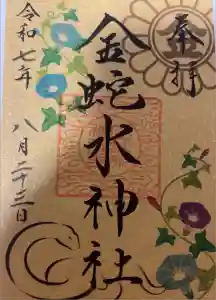 奉拝
金蛇水神社
令和七年
八月二十三日